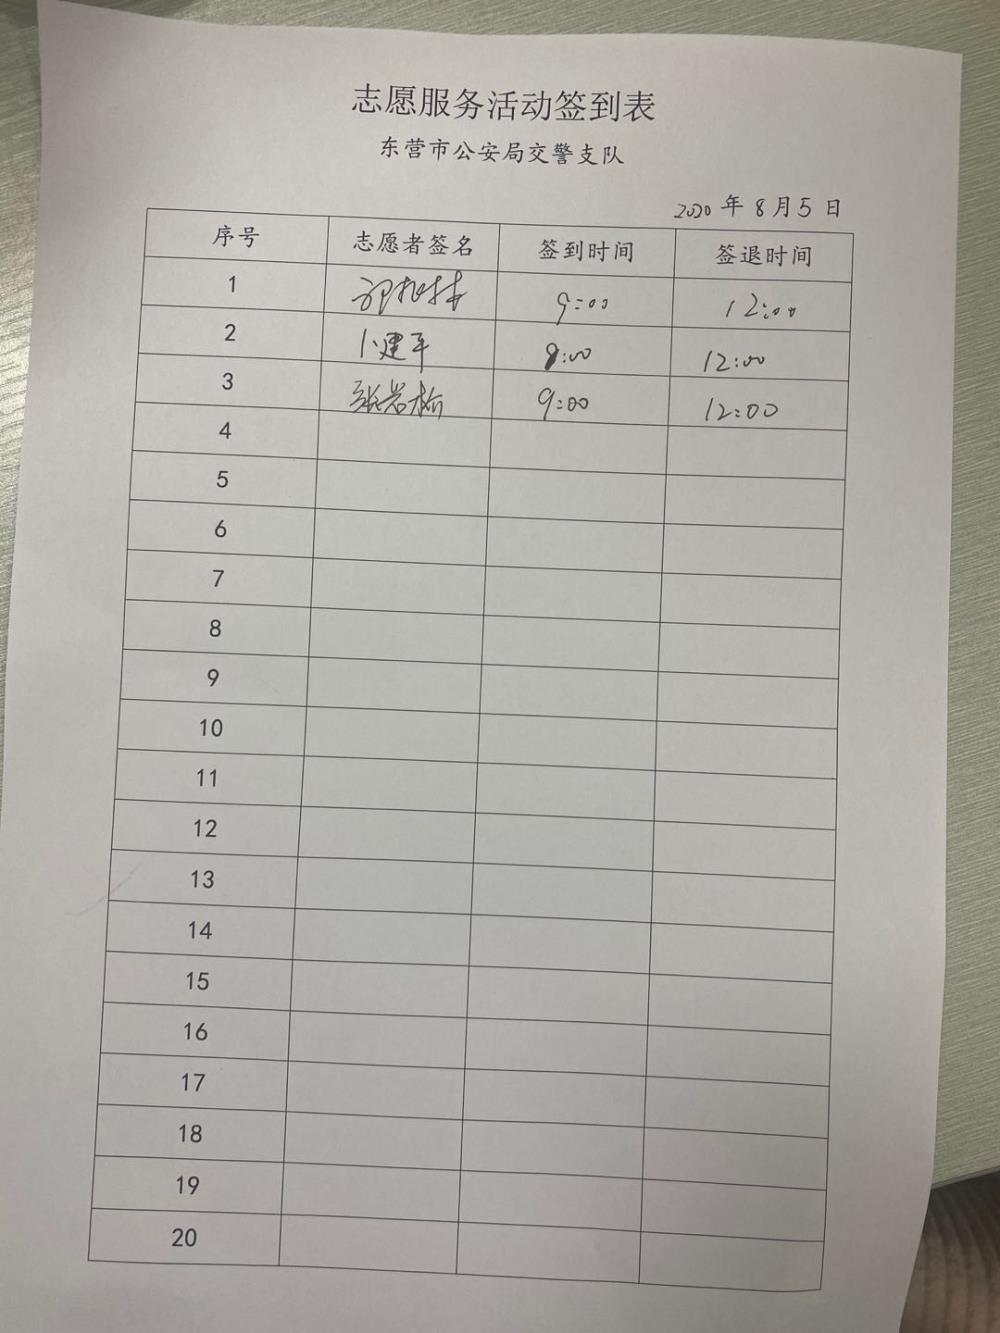 志愿服务活动签到表
东营市公安局交警支队
2020年8月5日
序号 志愿者签名 签到时间 签退时间
1 9:00 12:00
2 卜建平 8:00 12:00
3 9:00 12:00
4
5
6
7
8
9
10
11
12
13
14
15
16
17
18
19
20